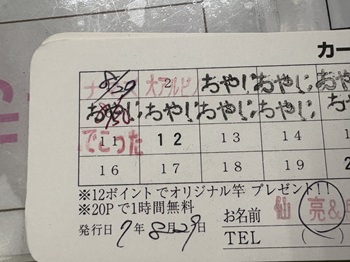 カー
2 大アルビノ おやじ おやじ おやじ
おやじ おやじ おやじ おやじ
11 でこった 12 13 14
16 17 18 19 2
※12ポイントでオリジナル竿 プレゼント!!
※20Pで1時間無料
お名前 仙 亮&
発行日 7年 8月29日
TEL ( )